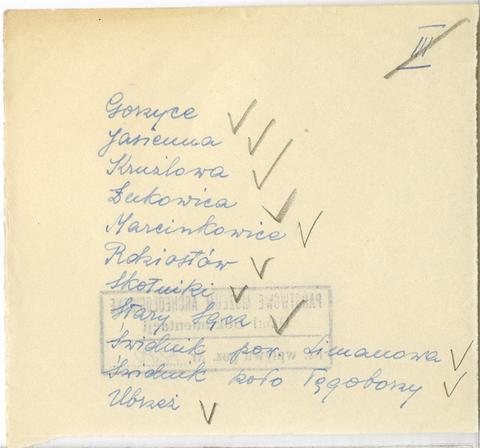 III
Gorzyce
Jasienna
Krużlowa
Łukowica
Marcinkowice
Rdziostów
Skotniki
Stary Sącz
Świdnik pow. Limanowa
Świdnik koło Tęgoborzy
Ubrzeż
PAŃSTWOWE MUZEUM ARCHEOLOGICZNE